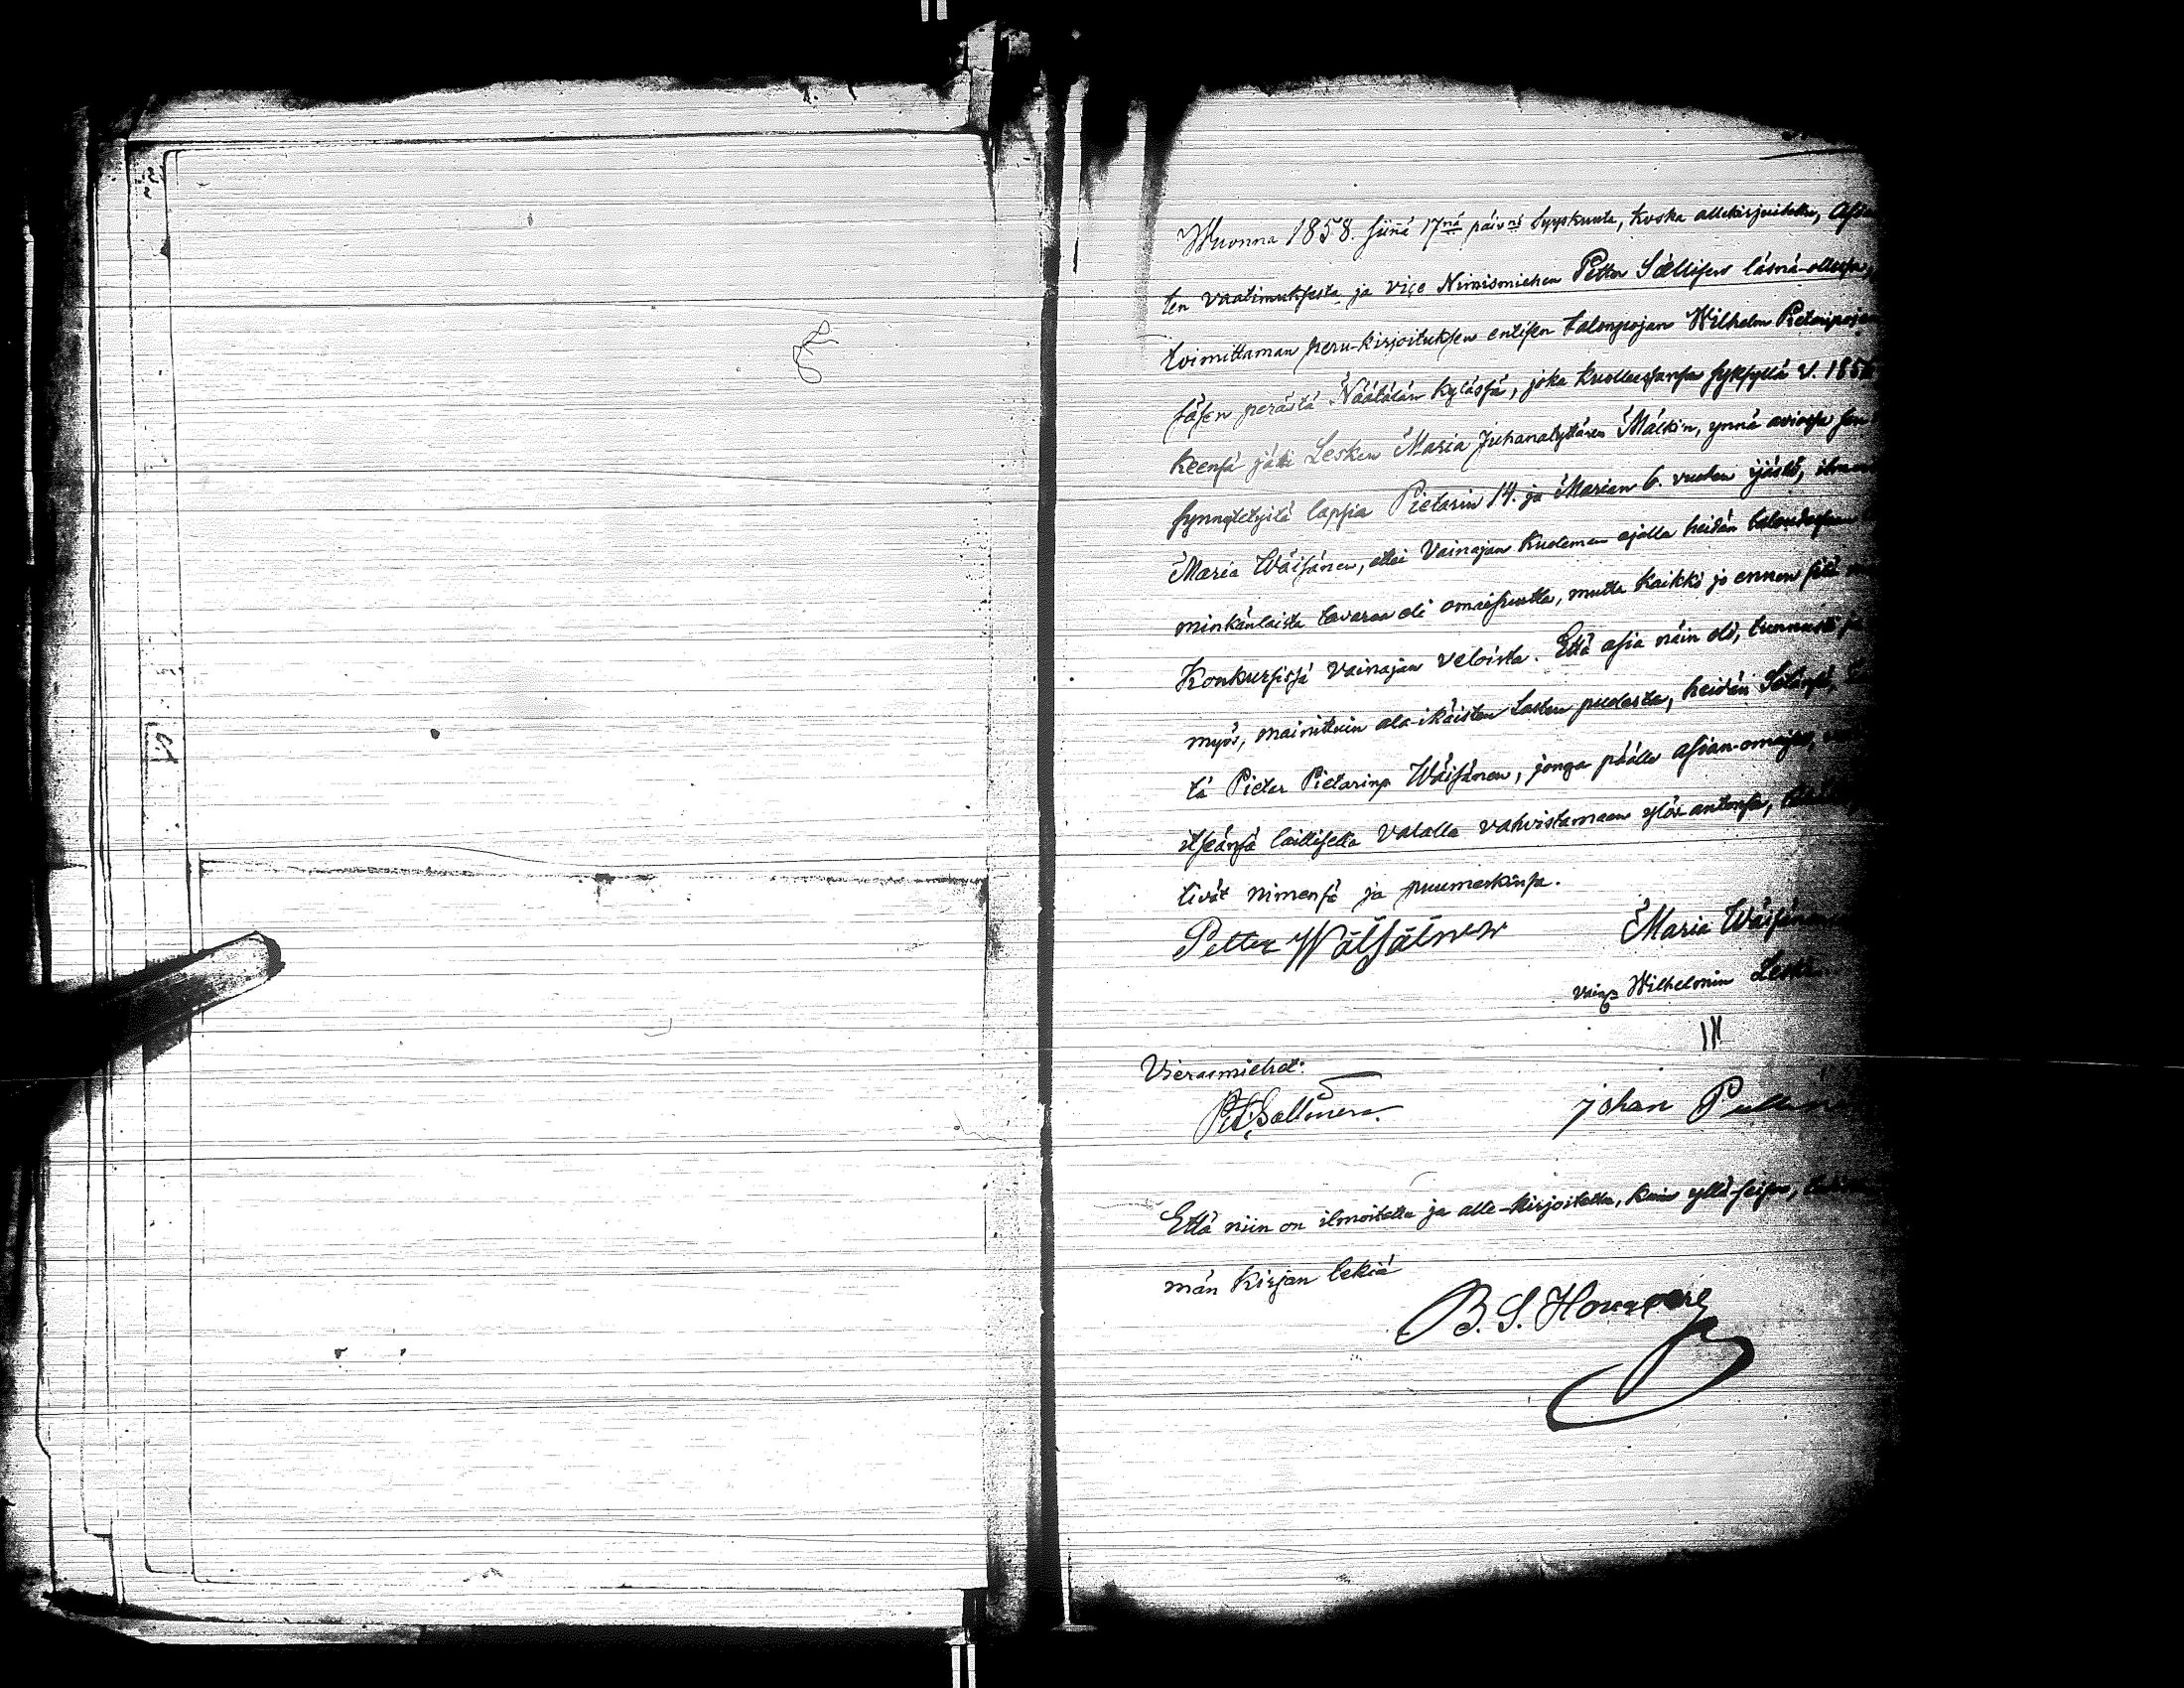 Wuonna 1858. siinä 17nä päivnä Syyskuuta, koska allekirjoitettu,
ten vaatimuksesta ja vice Nimismiehen Petter Sællisen läsnä-ollessa,
toimittaman peru-kirjoituksen entisen talonpojan Wilhelm Pietarinpojan
säsen perästä Näätälän kylässä, joka kuollessansa syksyllä v.
keensä jätti Lesken Maria Juhanatyttären Mälkin, ynnä aviossa
synnytetyitä lapsia Pietarin 14. ja Marian 6. vuoden ijästä,
Maria Wäisänen, ettei Vainajan kuoleman ajalla heidän taloudessansa
minkänlaista tavaraa oli omaisuutta, mutta kaikki jo ennen sitä
Konkurssissa vainajan veloista. Että asia näin oli, tunnusti
myös, mainittuin ala-ikäisten Lasten puolesta, heidän Setänsä,
tä Pieter Pietarinp Wäisänen, jonga päälle asian-omajat,
itseänsä laillisella valalla vahvistamaan ylös-antonsa,
tivät nimensä ja puumerkinsä.
Petter Wäisäinen Maria Wäisänen
vainp Wilhelmin Leski
III
Vierasmiehet:
Pet Sællinen. Johan
Että niin on ilmoitettu ja alle-kirjoitettu, kuin yllä-seisoo,
män kirjan tekiä
B. S.